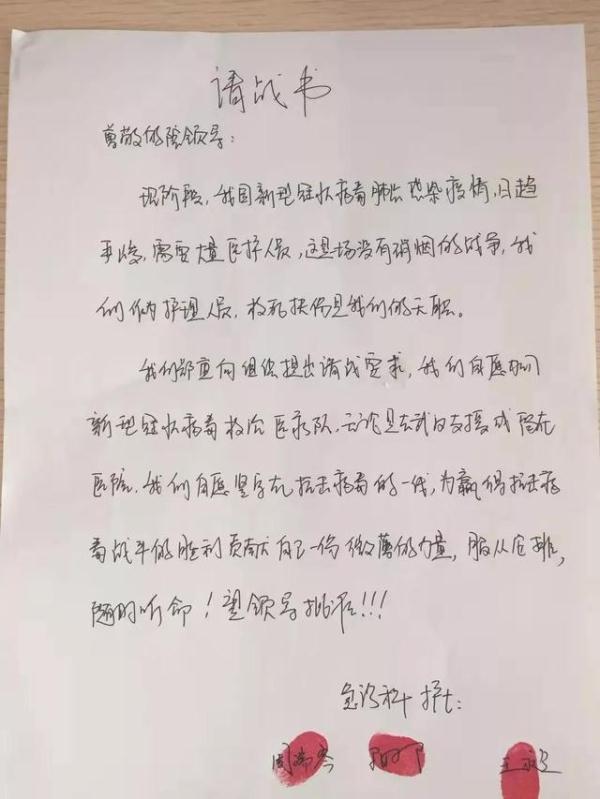 请战书
尊敬的院领导：
现阶段，我国新型冠状病毒肺炎感染疫情，日趋
严峻，需要大量医护人员，这是场没有硝烟的战争，我
们作为护理人员，救死扶伤是我们的天职。
我们郑重向组织提出请战要求，我们自愿加入
新型冠状病毒救治医疗队，无论是去武汉支援或留在
医院，我们自愿坚守在抗击病毒的一线，为赢得抗击病
毒战斗的胜利贡献自己一份微薄的力量，服从安排，
随时听命！望领导批准!!!
急诊科护士：
周 王